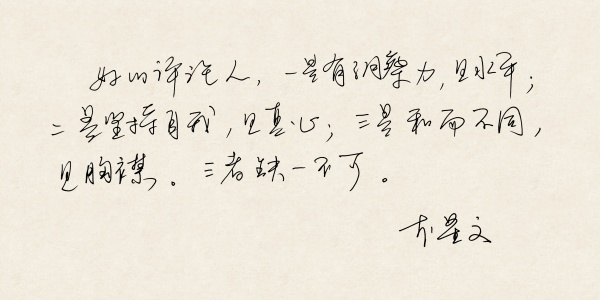 好的评论人，一是有洞察力，见水平；
二是坚持自我，见真心；三是和而不同，
见胸襟。三者缺一不可。
星文